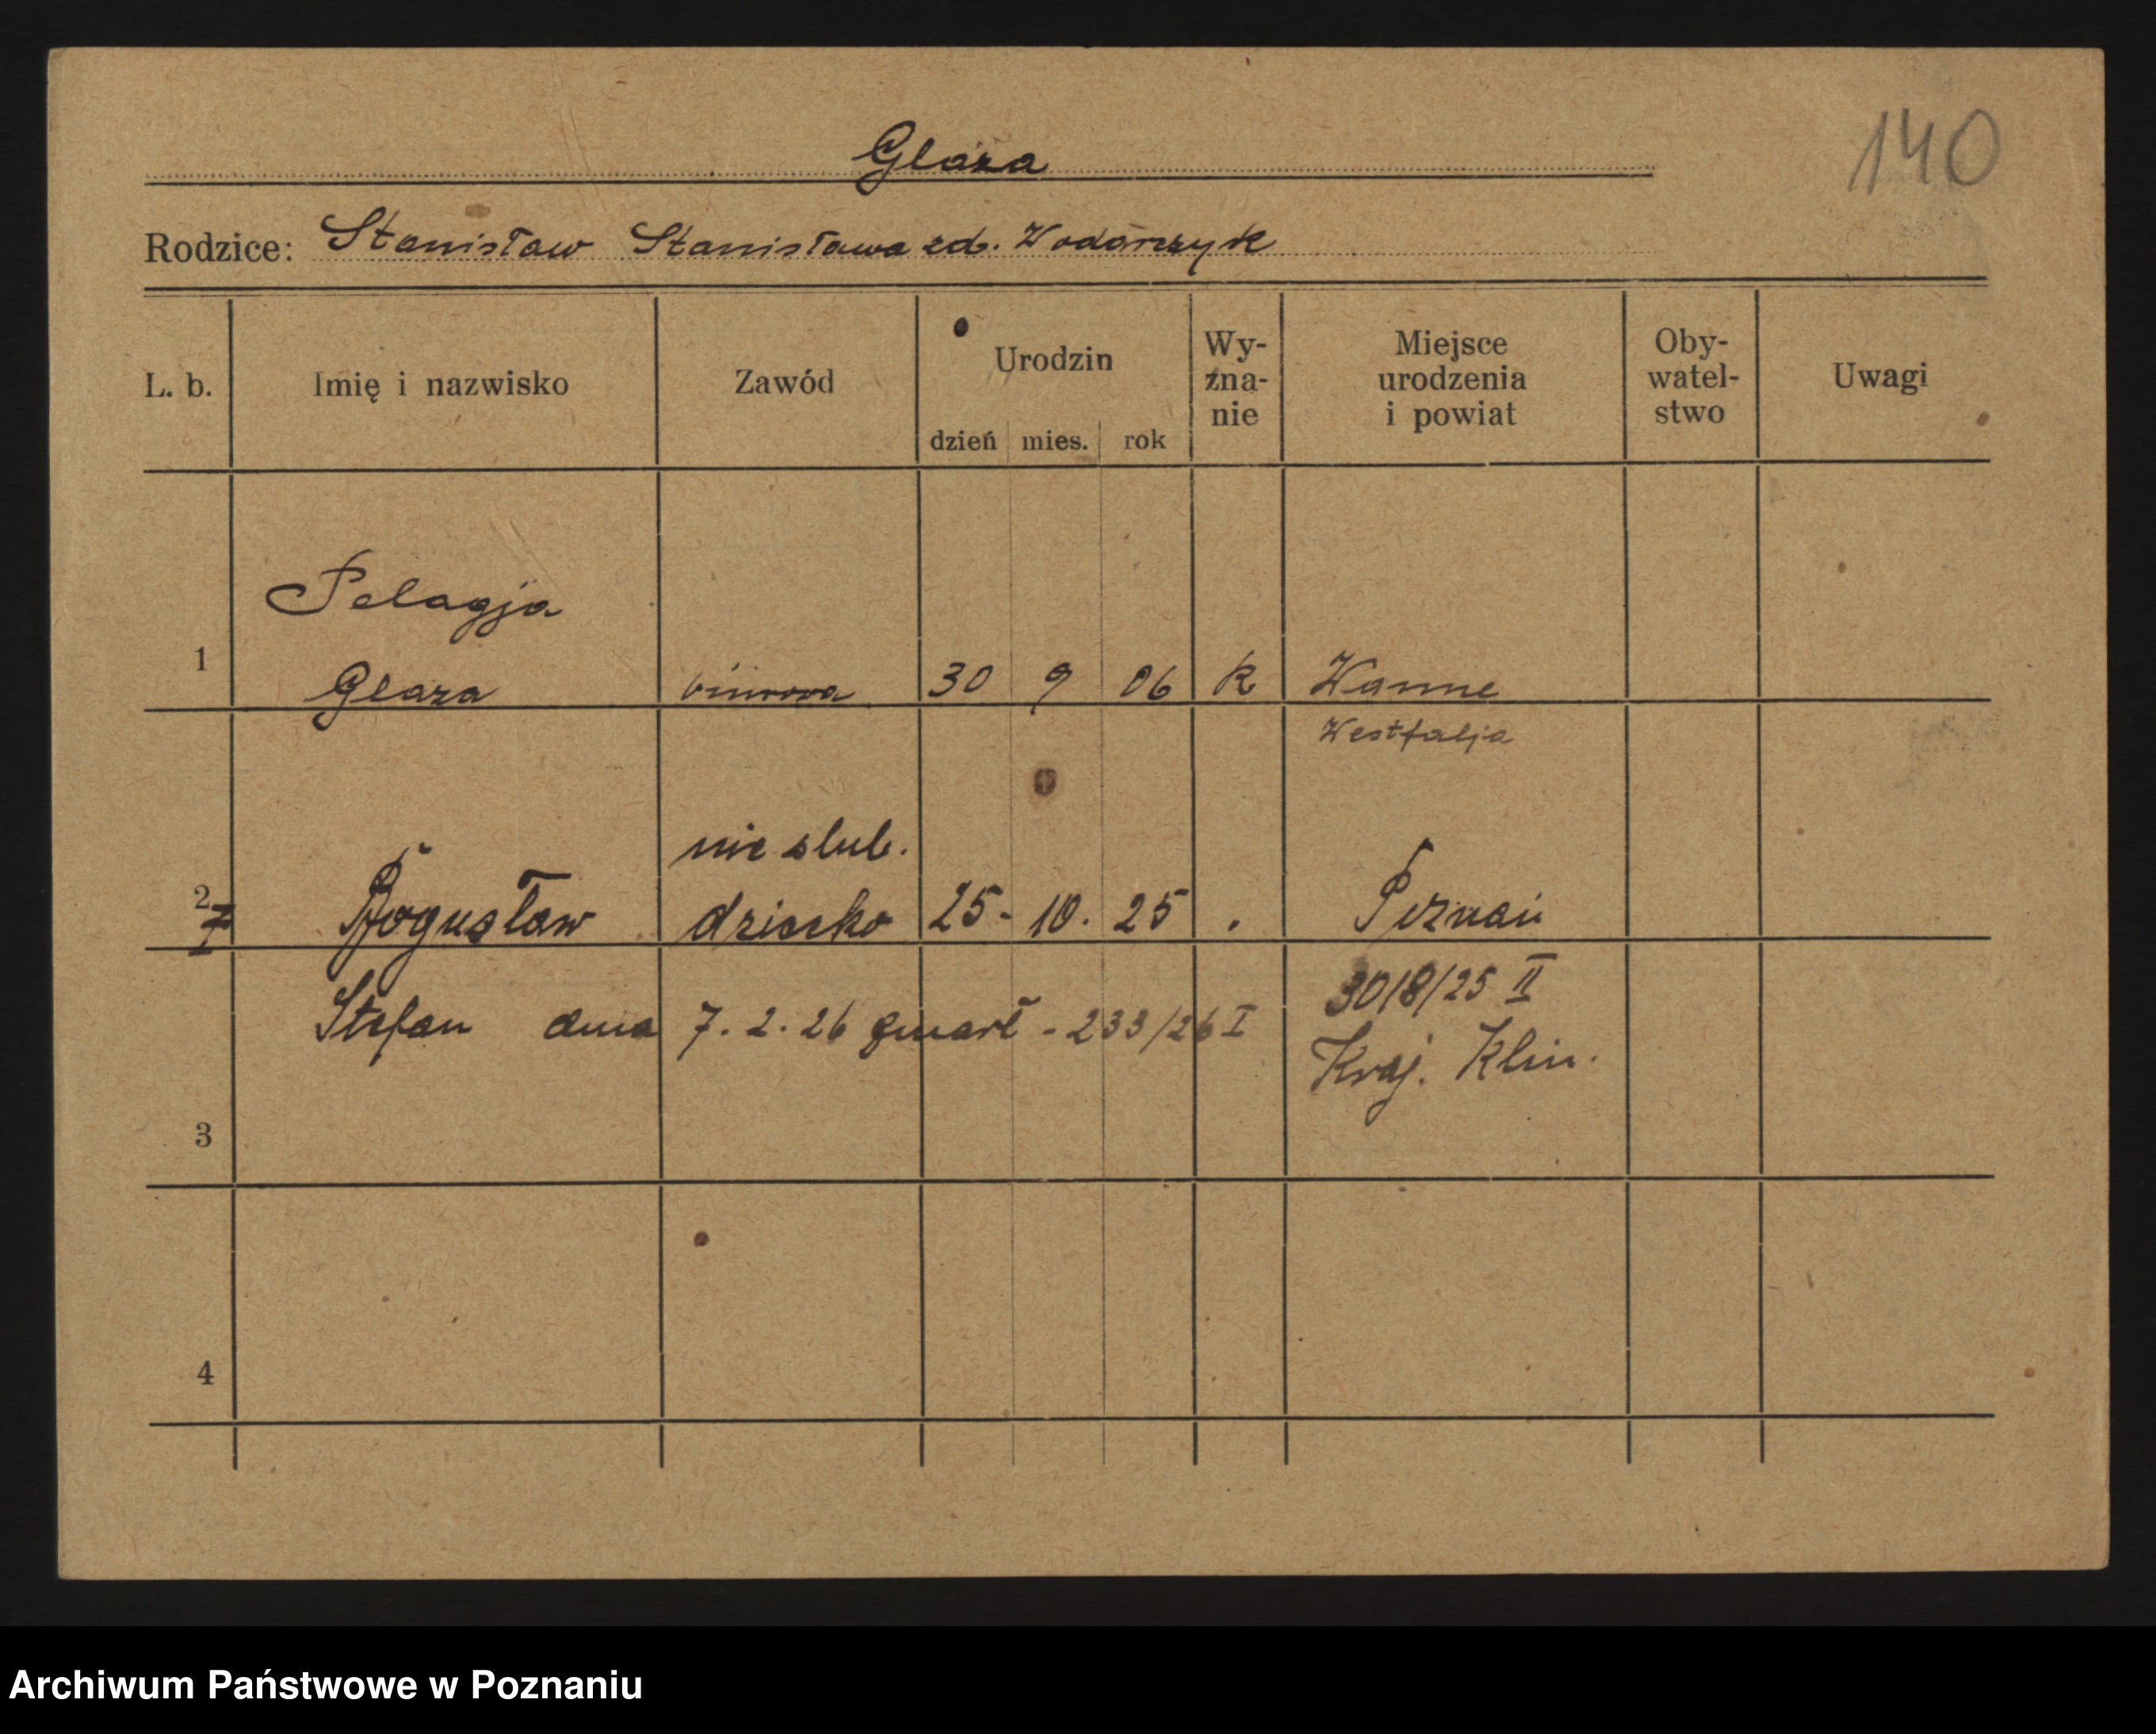 140
Glaza
Rodzice: Stanisław Stanisława zd. Wodarczyk
L. b. Imię i nazwisko Zawód Urodzin Wy-zna-nie Miejsce urodzenia i powiat Oby-watel-stwo Uwagi
dzień mies. rok
Pelagja
1 Glaza biurowa 30 9 06 k Wanne
Westfalja
nieślub.
2 Bogusław dziecko 25. 10. 25 Poznań
3018/25 II
Stefan dnia 7. 2. 26 zmarł - 233/26 I
Kraj. Klin.
3
4
Archiwum Państwowe w Poznaniu